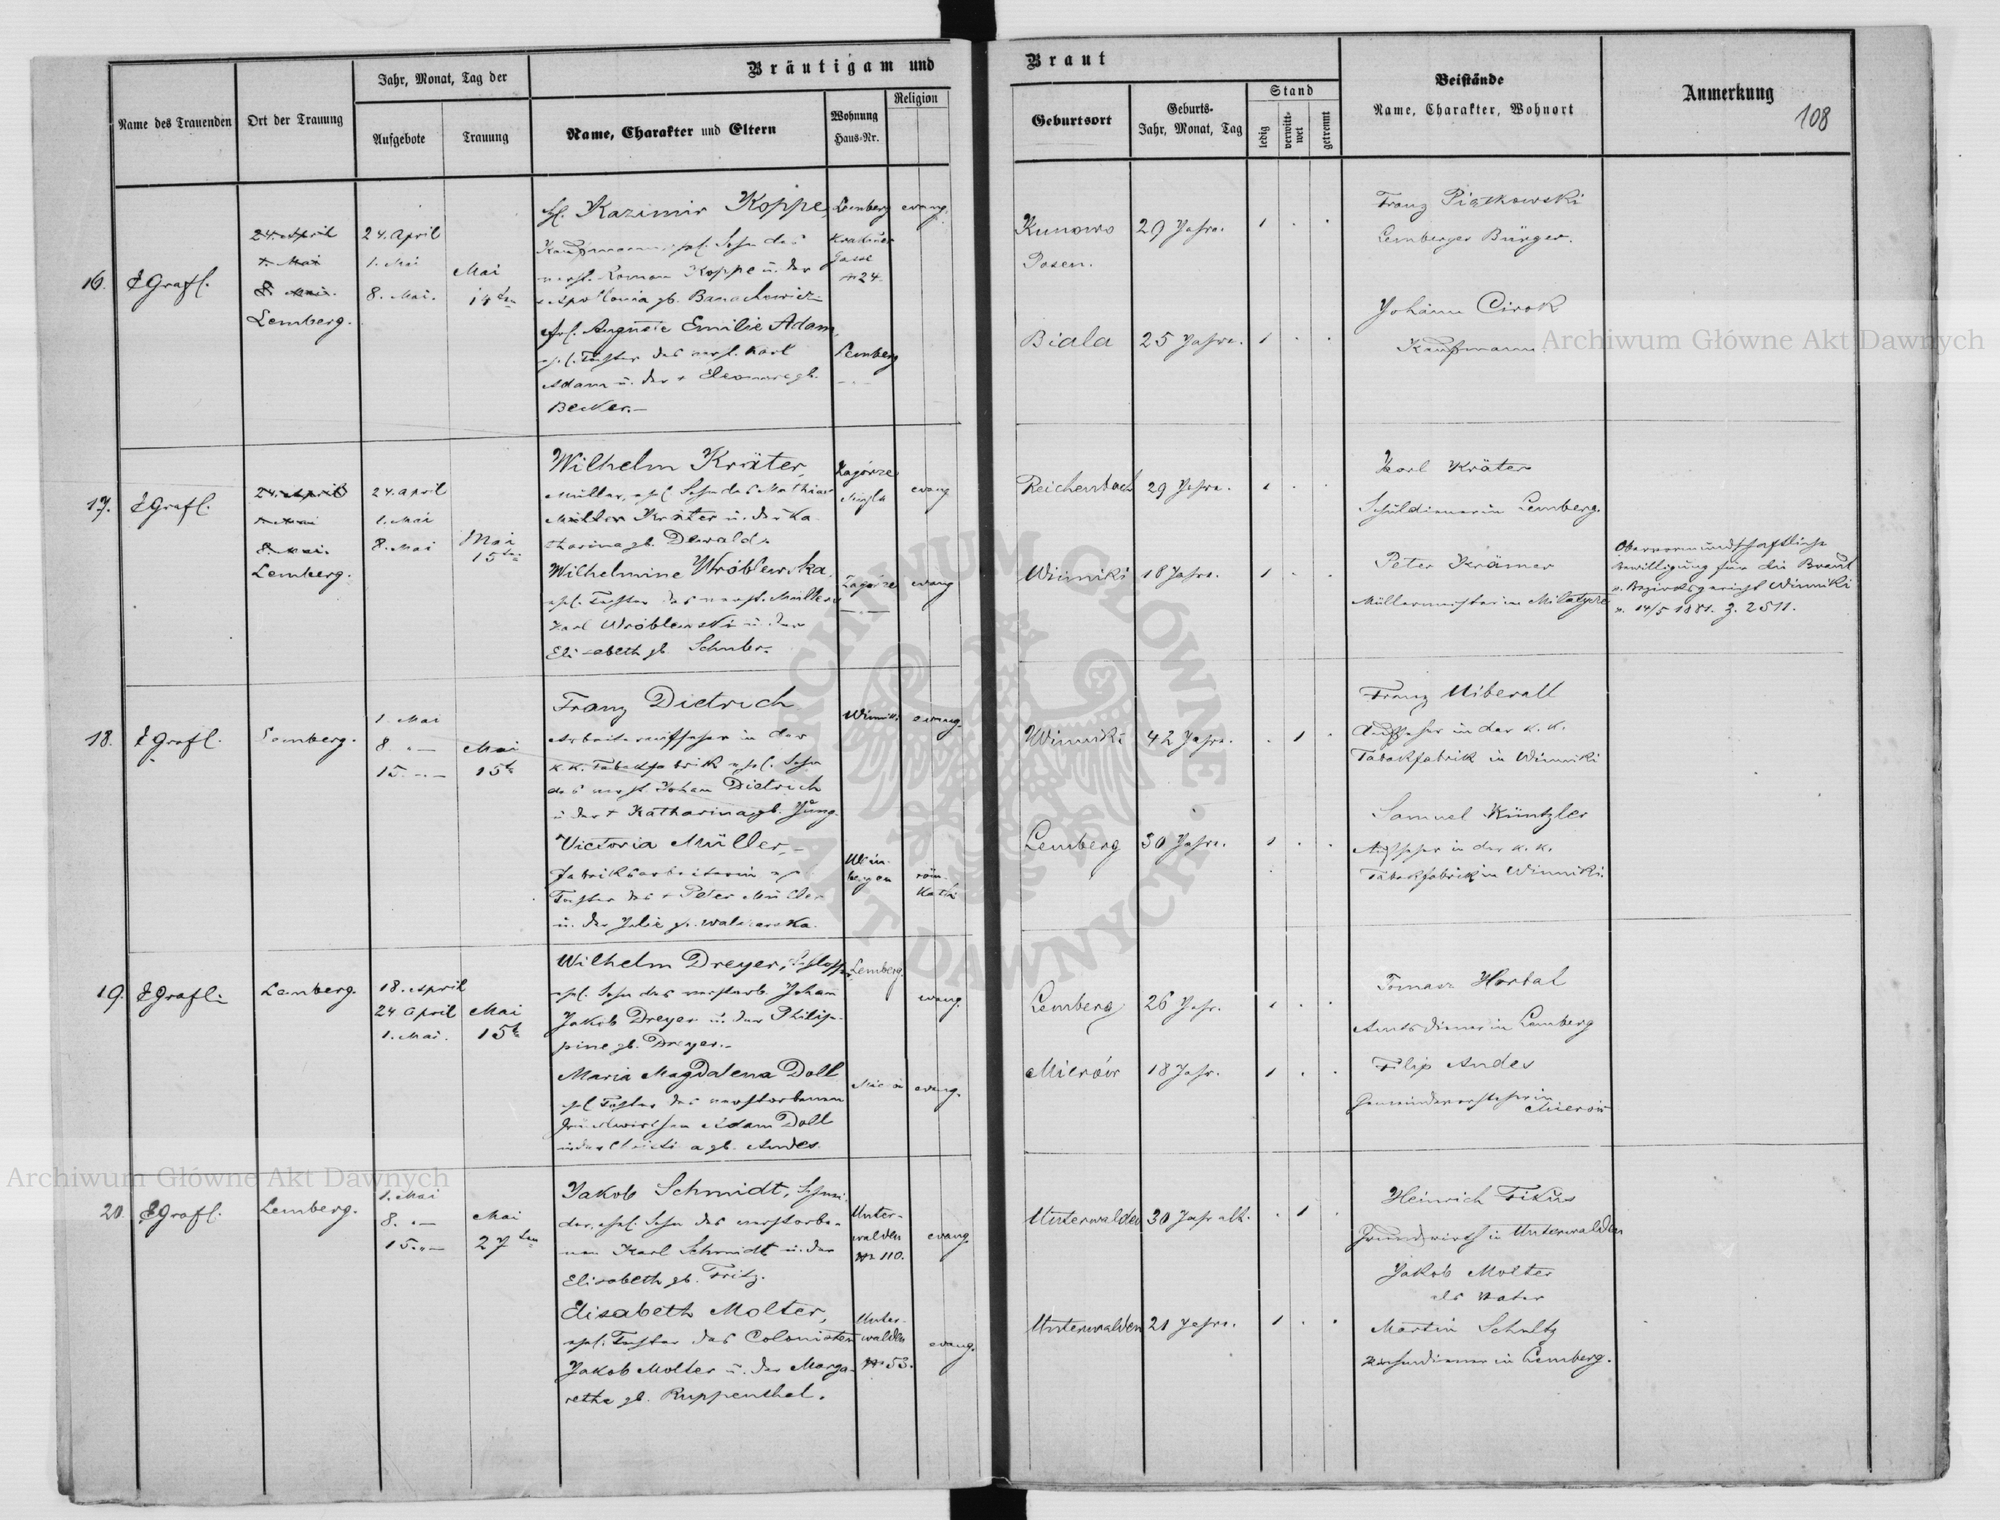 Bräutigam und
Braut
Name des Trauenden
Ort der Trauung
Jahr, Monat, Tag der
Aufgebote
Trauung
Name, Charakter und Eltern
Wohnung
Haus-Nr.
Religion
Geburtsort
Geburts-
Jahr, Monat, Tag
Stand
ledig
verwitt-
wet
getrennt
Beistände
Name, Charakter, Wohnort
Anmerkung
108
16.
EGrafl.
24. April
1. Mai
8. Mai.
Lemberg.
24. April
1. Mai
8. Mai.
Mai
14ten
Kazimir Koppe,
Kaufmann, ehl. Sohn des
verst. Roman Koppe u. der
Lemberg
Krakauer
Gasse
N 24
evang.
Auguste Emilie Adam,
ehl. Tochter des verst. Karl
Adam u. der + Eleonore gb.
Becker.
Lemberg
Kunowo
Posen.
29 Jahre.
Biala
25 Jahre.
Franz Piątkowski
Lemberger Bürger.
Johann Cirok
Kaufmann.
17.
EGrafl.
24. April
1. Mai
8. Mai.
Lemberg.
24. April
1. Mai
8. Mai
Mai
15ten
Wilhelm Kräter,
Müller, ehl. Sohn des Mathias
Kräter u. der Ka-
tharina gb. Dewald.
Zagórze
evang
Wilhelmine Wróblewska,
ehl. Tochter des verst. Müllers
Karl Wróblewski u. der
Elisabeth gb. Schuber.
Zagórze
evang
Reichenbach
29 Jahre.
Winniki
18 Jahre.
Karl Kräter
Schuldiener in Lemberg.
Peter Krämer
Müllermeister in
Obervormundschaftliche
Bewilligung für die Braut
v. Bezirksgericht Winniki
v. 14/5 1881. Z. 2511.
18.
EGrafl.
Lemberg.
1. Mai
8. " —
15. " —
Mai
15t
Franz Dietrich
Arbeiteraufseher in der
k.k. Tabakfabrik ehel. Sohn
des verst. Johan Dietrich
u. der + Katharina gb. Jung.
Winniki
evang.
Victoria Müller,
Fabriksarbeiterin ehl.
Tochter des + Peter Müller
u. der Julie
röm.
Kath.
Winniki
42 Jahre.
Lemberg
30 Jahre.
Franz Uiberall
Aufseher in der k. k.
Tabakfabrik in Winniki
Samuel Küntzler
Aufseher in der k. k.
Tabakfabrik in Winniki.
19.
EGrafl.
Lemberg.
18. April
24 April
1. Mai.
Mai
15t
Wilhelm Dreyer, Schlosser,
ehl. Sohn des verstorb. Johan
Jakob Dreyer u. der Philip-
pine gb. Dreyer.
Lemberg.
evang.
Maria Magdalena Doll
ehl Tochter des verstorbenen
Grundwirthen Adam Doll
gb. Andes.
evang.
Lemberg
26 Jahr.
Mierów
18 Jahr.
Tomasz Hortal
Amtsdiener in Lemberg
Filip Andes
Gemeindevorsteher in
Mierów
20.
EGrafl.
Lemberg.
1. Mai
8. " —
15. " —
Mai
27ten
Jakob Schmidt, Schnei-
der, ehel. Sohn des verstorbe-
nen Karl Schmidt u. der
Elisabeth gb. Fritz.
Unter-
walden
No 110.
evang.
Elisabeth Molter,
ehel. Tochter des Colonisten
Jakob Molter u. der Marga-
retha gb. Ruppenthal.
Unter-
walden
No 53.
evang.
Unterwalden
30 Jahr alt.
Unterwalden
21 Jahre.
Heinrich Fikus
Grundwirth in Unterwalden
Jakob Molter
als Vater
Martin Schultz
in Lemberg.
Archiwum Główne Akt Dawnych
Archiwum Główne Akt Dawnych
ARCHIWUM GŁÓWNE · AKT DAWNYCH